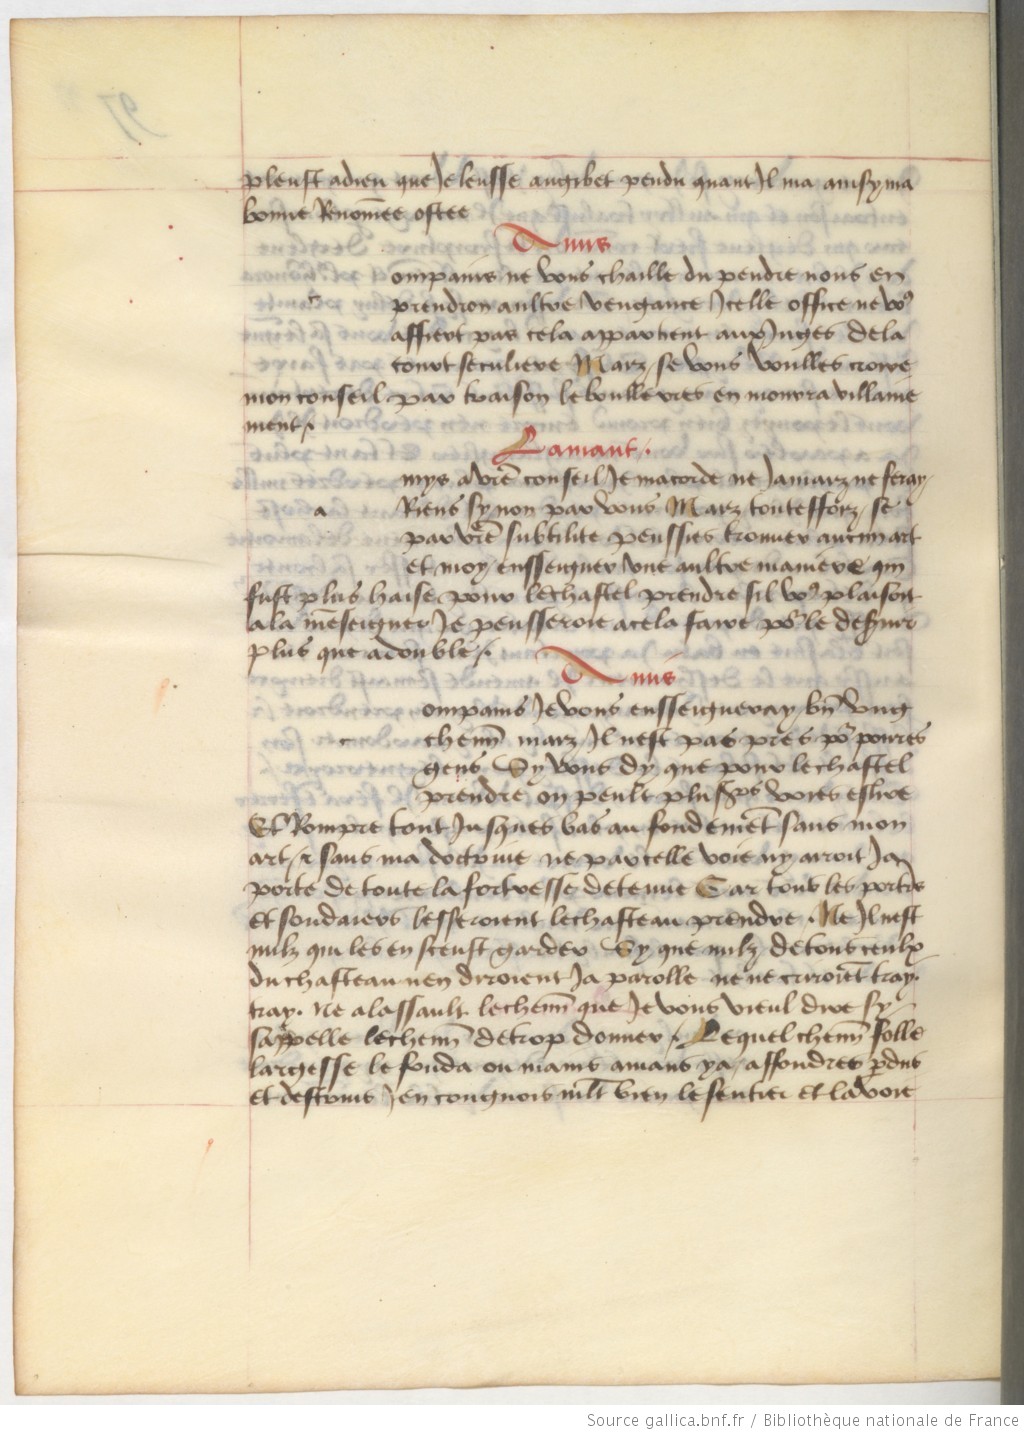 pleust adieu que Je leusse augibet pendu quant Il ma ainsy ma
bonne Renom̃ee ostee
Amis
ompains ne vous chaille du pendre nous en
c prendron aultre vengance Icelle office ne vo9
affiert pas cela appartient aux Juges dela
court seculiere Marz se vous voulles croire
mon conseil par traison le boullevres en mourra villaine
ment /.
Lamant .
mys a vr̃e conseil Je macorde ne Jamarz ne feray
a Riens sy non par vous Marz touteffoiz / se
par vr̃e subtilite peussies trouver aucun art
et moy / ensseigner une aultre maniere qui
fust plus haise pour le chastel prendre sil vo9 plaisoit
a la m̃enseigner Je pensseroie a cela faire po᷑ le desnir
plus que a double /.
Amis
ompains Je vous ensseigneray / bñ ung
c chemĩ marz / Il nest pas pres po᷑ povres
gens Sy vous dy que pour le chastel
prendre on peult plus᷑s voies eslire
Et Rompre tout Jusques bas au fondemẽt sans mon
art / et sans ma doctrine ne par celle voie ny auroit Ja
porte de toute la fortresse detenue Car tous les portiers
Et soudaiers lesseroient le chasteau prendre . Ne Il nest
nulz qui les en sceust garder Sy que nulz de tous ceulx
du chasteau nen diroient Ja parolle ne ne criroiẽt tray .
tray . Ne alassault le chemĩ que Je vous vieul dire sy
sappelle le chemĩ de trop donner /. Lequel chemĩ folle
largesse le fonda ou mains amans ya / affondres p̱dus
et desconfis Jen congnois mlt̃ bien le sentier et la voie
Source gallica.bnf.fr / Bibliothèque nationale de France